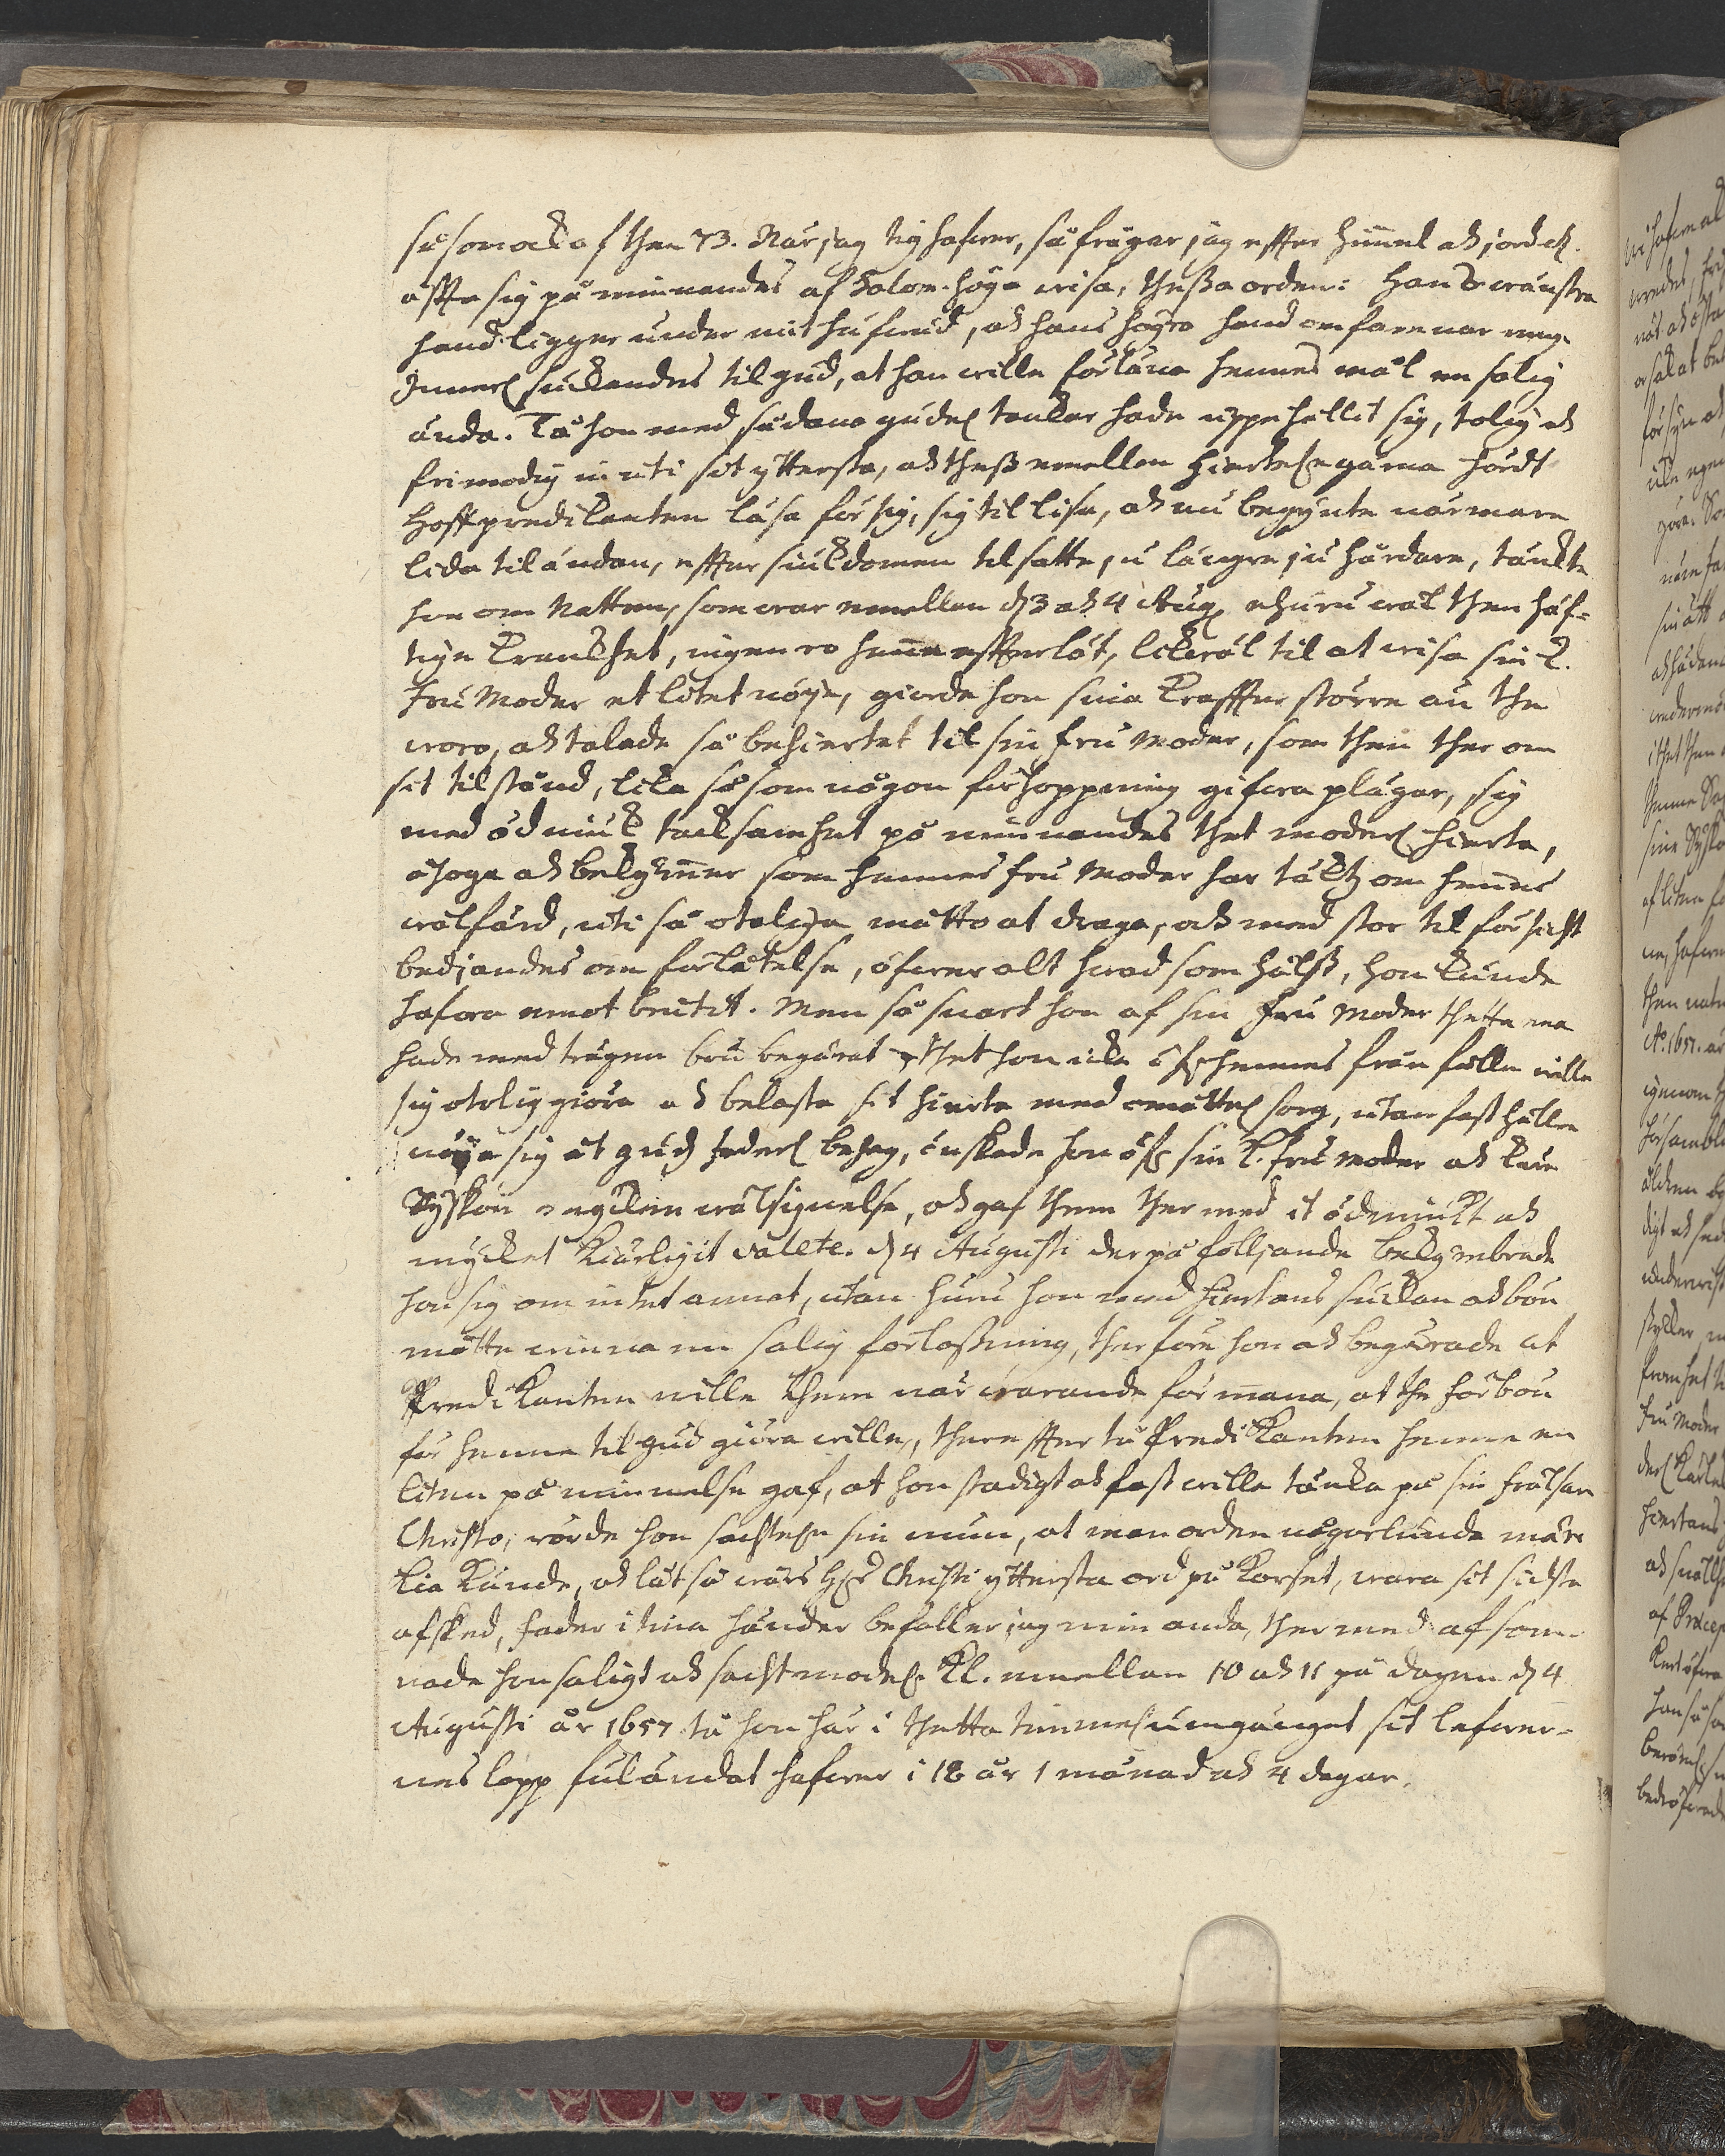 såsom ock af then 73. När jag tig hafwer, så frågar jag effter himmel och jord etc.
offta sig påminnandes af Salom. höga wisa, thessa orden: Hans wänstra
hand ligger under mit hufwud, och hans högra hand omfamnar mig.
Innerl. suckandes til gud, at han wille förläna hennes mål en salig
ända. Tå hon med sådana gudel. tankar hade uppehållit sig, tolig och
frimodig in uti sit yttersta, och thess emellan hierteligen gärna hördt
Hoffpredikanten läsa för sig, sig til lisa, och nu begynte närmare
lida til ändan, effter siukdomen tilsatte ju längre ju hårdare, tänkte
hon om Natten, som war emellan d. 3 och 4 Aug. ehuru wäl then häf-
tige krankhet, ingen ro henne effterlät, likwäl til at wisa sin k.
Fru Moder et litet nöye, giorde hon sina kraffter större än the
woro, och talade så behiertet til sin fru Moder, som then ther om
sit tilstånd, lika såsom någon förhoppning gifwa plägar, sig
med ödmiuk tacksamhet påminnandes thet moderl. hierta,
åhoga och bekymmer som hennes fru Moder har täckz om hennes
wälfärd, uti så otaliga måtto at draga, och med stor tilförsicht
bediandes om förlåtelse, öfwer alt hwad som hälst, hon kunde
hafwa emot brutit. Men så snart hon af sin Fru Moder thetta
hade med trägen bön begärat, thet hon icke öfr. hennes frånfälle wille
sig otolig giöra och belasta sit hierta med omåttel. sorg, utan fast hällre
nöya sig åt gudz faderl. behag, önskade hon öfr. sin k. fru Moder och kära
Syskon myckin wälsignelse, och gaf them ther med it ödmiukt och
mycket kiärligit valete. d. 4 Augusti der på följande bekymbrade
hon sig om intet annat, utan huru hon med hiertans suckan och bön
måtte winna en salig förlossning, therföre hon och begärade at
Predikanten wille them närwarande förmana, at the förbön
för henne til gud giöra wille, thereffter tå Predikanten henne en
liten påminnelse gaf, at hon stadigt och fast wille tänka på sin frälsare
Christo, rörde hon sachteligen sin mun, at man orden någorlunda mär-
kia kunde, och lät så wårs H. Christi yttersta ord på korset, wara sit sidsta
afsked, fader i tina händer befaller jag min anda, ther med afsom-
nade hon saligt och sachtmodel. Kl. emellan 10 och 11 på dagen d. 4
Augusti år 1657 tå hon här i thetta timmel. umgänget sit lefwer-
nes lopp fuländat hafwer i 18 år 1 månad och 4 dagar.